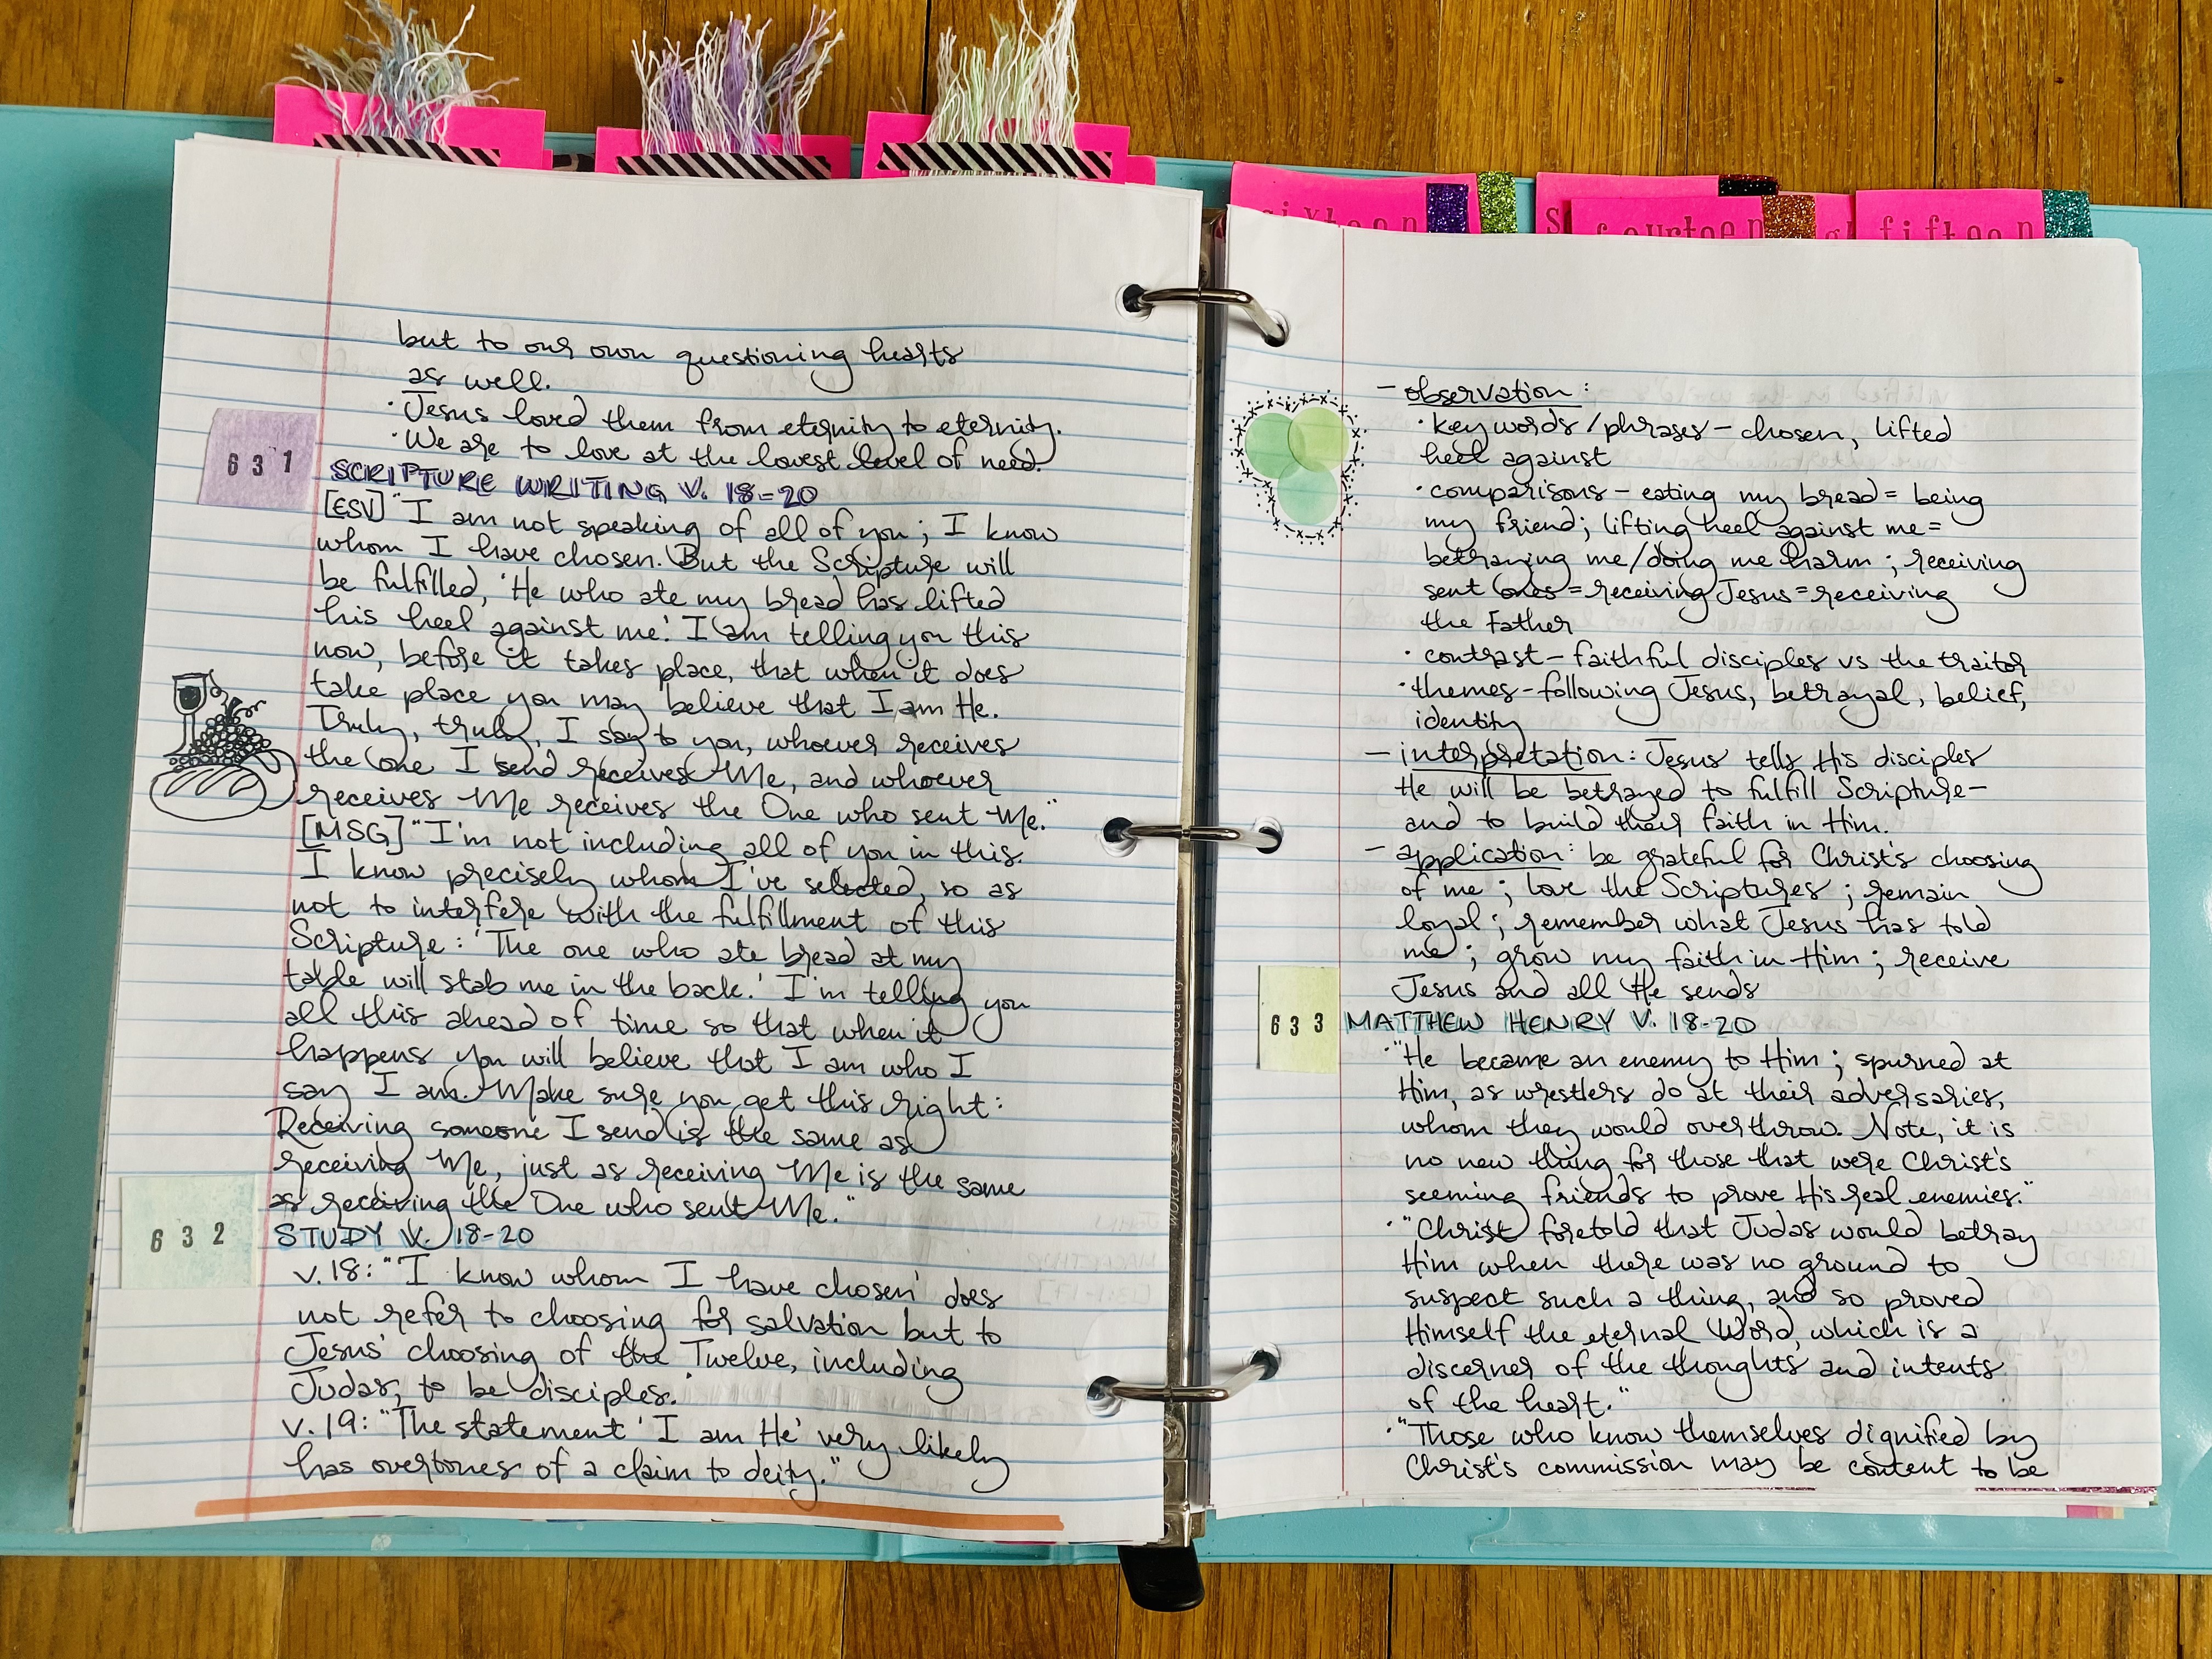 sixteen
fourteen
fifteen
but to our own questioning hearts
as well.
· Jesus loved them from eternity to eternity.
· We are to love at the lowest level of need.
631
SCRIPTURE WRITING V. 18-20
[ESV] "I am not speaking of all of you; I know
whom I have chosen. But the Scripture will
be fulfilled, 'He who ate my bread has lifted
his heel against me.' I am telling you this
now, before it takes place, that when it does
take place you may believe that I am He.
Truly, truly, I say to you, whoever receives
the one I send receives Me, and whoever
receives Me receives the One who sent Me."
[MSG] "I'm not including all of you in this.
I know precisely whom I've selected, so as
not to interfere with the fulfillment of this
Scripture: 'The one who ate bread at my
table will stab me in the back.' I'm telling you
all this ahead of time so that when it
happens you will believe that I am who I
say I am. Make sure you get this right:
Receiving someone I send is the same as
receiving Me, just as receiving Me is the same
as receiving the One who sent Me."
632
STUDY V. 18-20
v. 18: "'I know whom I have chosen' does
not refer to choosing for salvation but to
Jesus' choosing of the Twelve, including
Judas, to be disciples."
v. 19: "The statement 'I am He' very likely
has overtones of a claim to deity."
- observation:
· key words/phrases - chosen, lifted
heel against
· comparisons - eating my bread = being
my friend; lifting heel against me =
betraying me/doing me harm; receiving
sent ones = receiving Jesus = receiving
the Father
· contrast - faithful disciples vs the traitor
· themes - following Jesus, betrayal, belief,
identity
- interpretation: Jesus tells His disciples
He will be betrayed to fulfill Scripture -
and to build their faith in Him.
- application: be grateful for Christ's choosing
of me; love the Scriptures; remain
loyal; remember what Jesus has told
me; grow my faith in Him; receive
Jesus and all He sends
633
MATTHEW HENRY V. 18-20
· "He became an enemy to Him; spurned at
Him, as wrestlers do at their adversaries,
whom they would overthrow. Note, it is
no new thing for those that were Christ's
seeming friends to prove His real enemies."
· "Christ foretold that Judas would betray
Him when there was no ground to
suspect such a thing, and so proved
Himself the eternal Word, which is a
discerner of the thoughts and intents
of the heart."
· "Those who know themselves dignified by
Christ's commission may be content to be